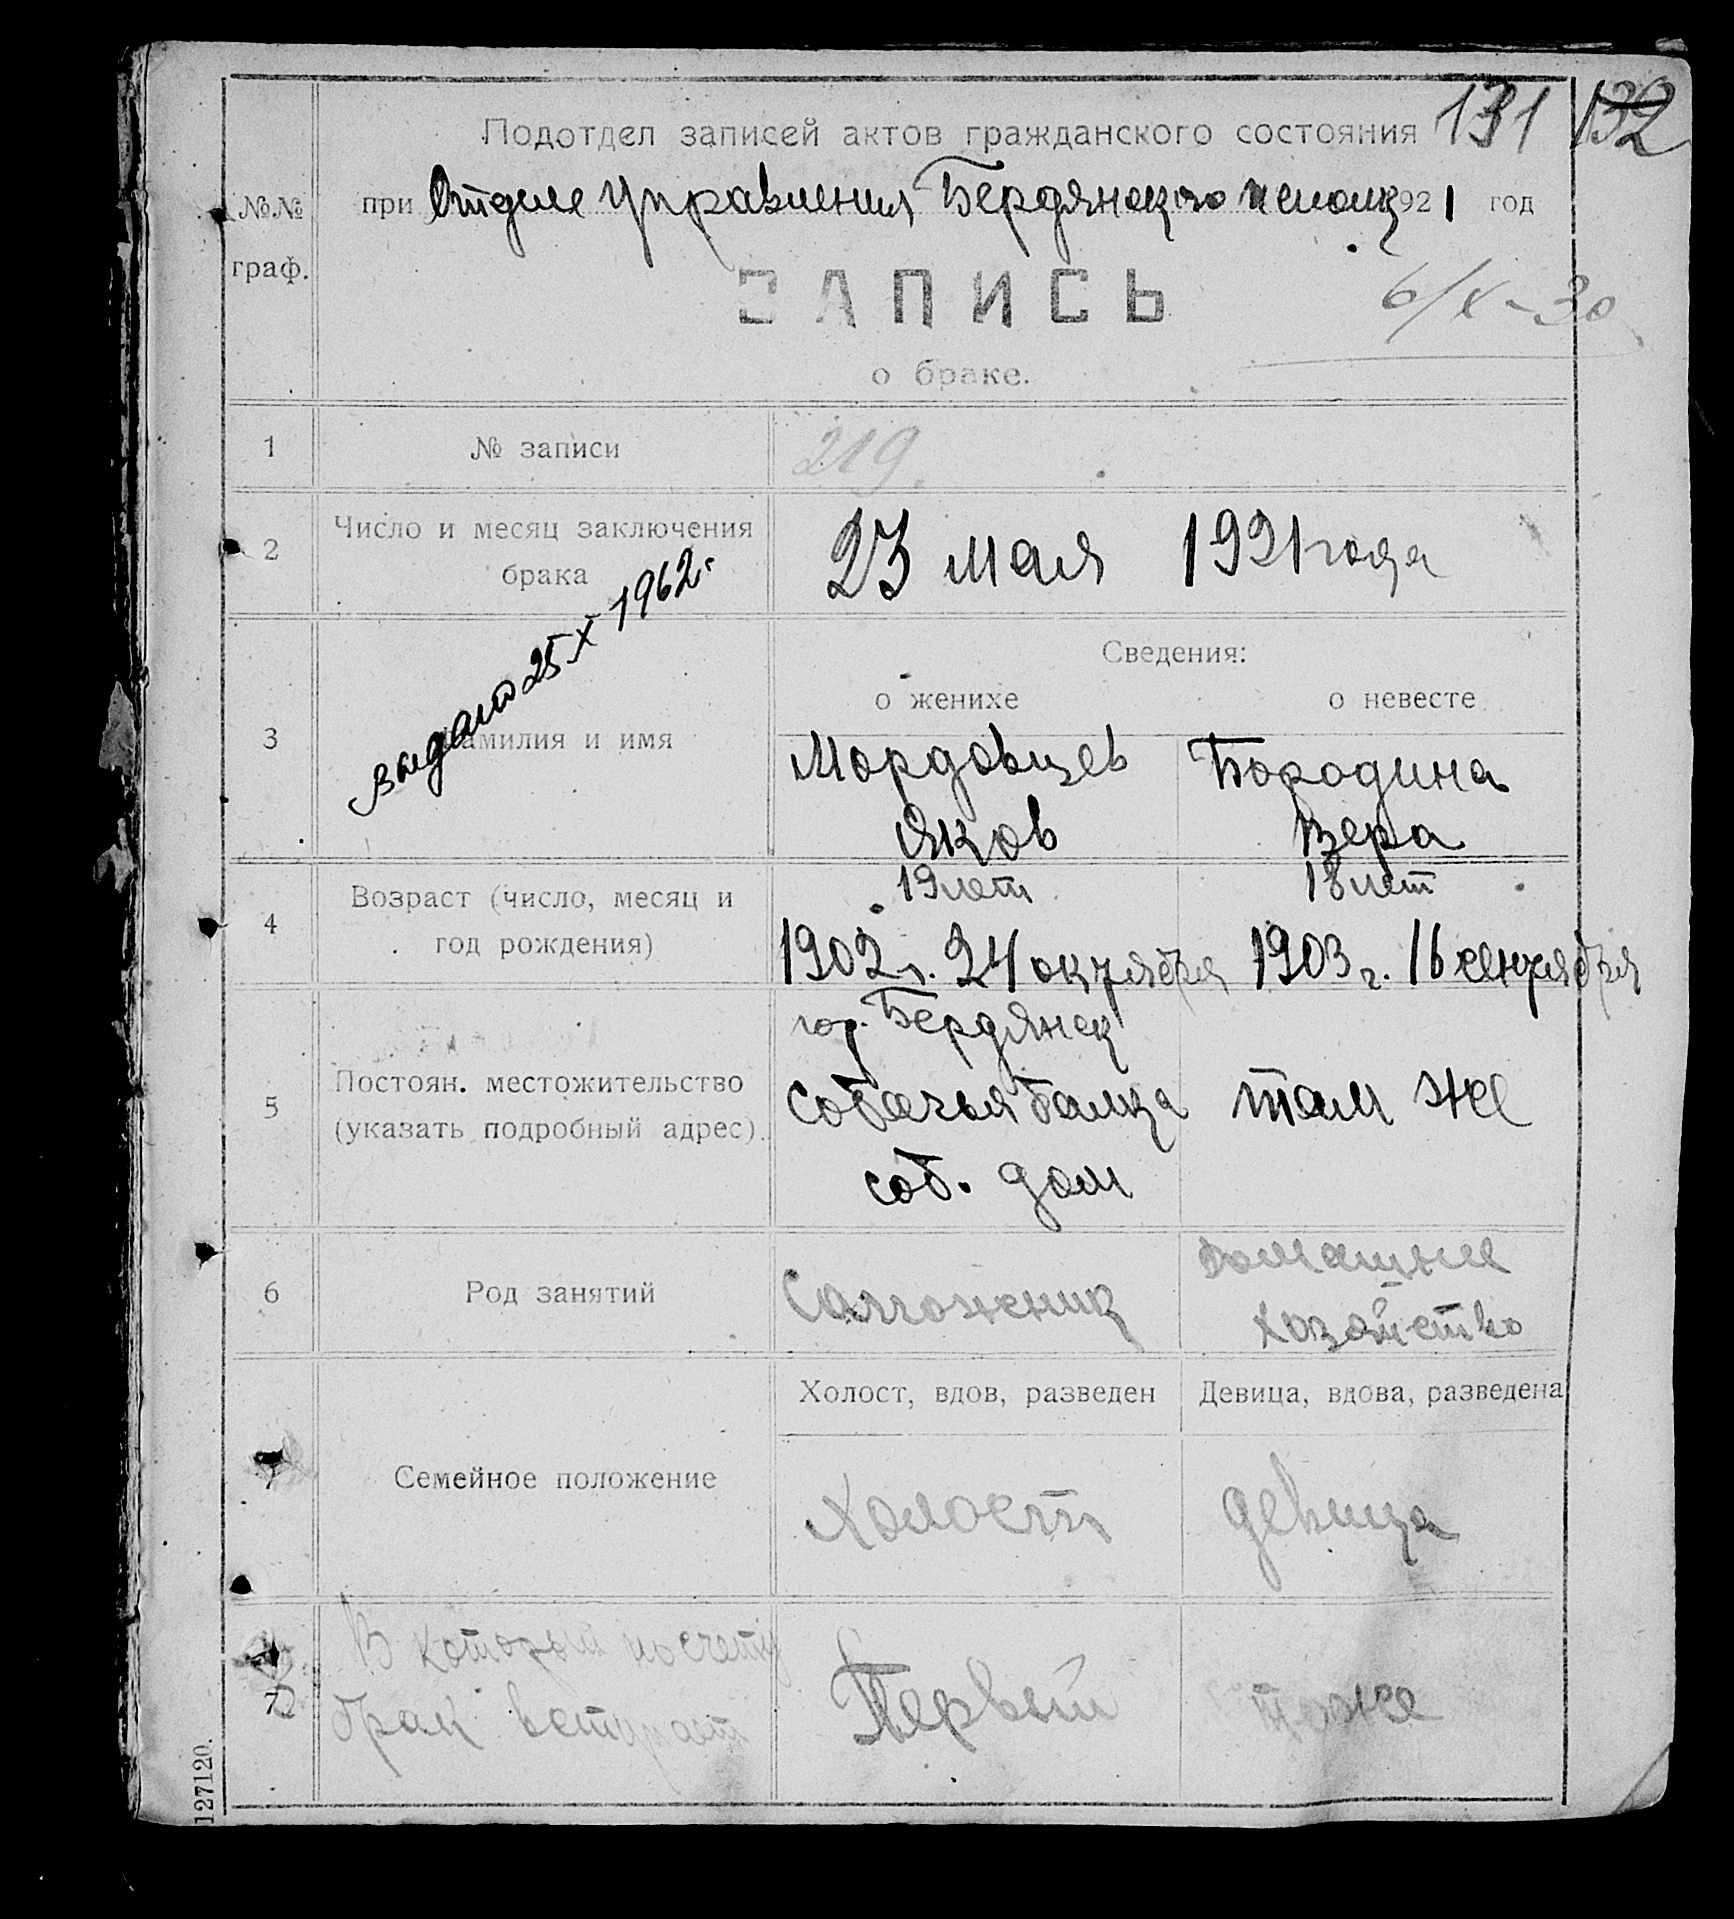 131 132
Подотдел записей актов гражданского состояния
№№ граф.
при Отделе Управления Бердянского исполк 1921 год
ЗАПИСЬ
6/X-30
о браке.
1 № записи 219.
2 Число и месяц заключения брака 23 мая 1921 года
выдано 25 X 1962.
Сведения:
о женихе о невесте
3 Фамилия и имя
Мордовцев Бородина
Яков Вера
19 лет 18 лет
4 Возраст (число, месяц и
год рождения)
1902 г. 24 октября 1903 г. 16 сентября
гор. Бердянск
5 Постоян. местожительство
(указать подробный адрес).
Собачья балка там же
соб. дом
6 Род занятий
Сапожник домашнее
хозяйство
Холост, вдов, разведен Девица, вдова, разведена
7 Семейное положение
Холост девица
7 В который по счету
брак вступает
Первый тоже
127120.